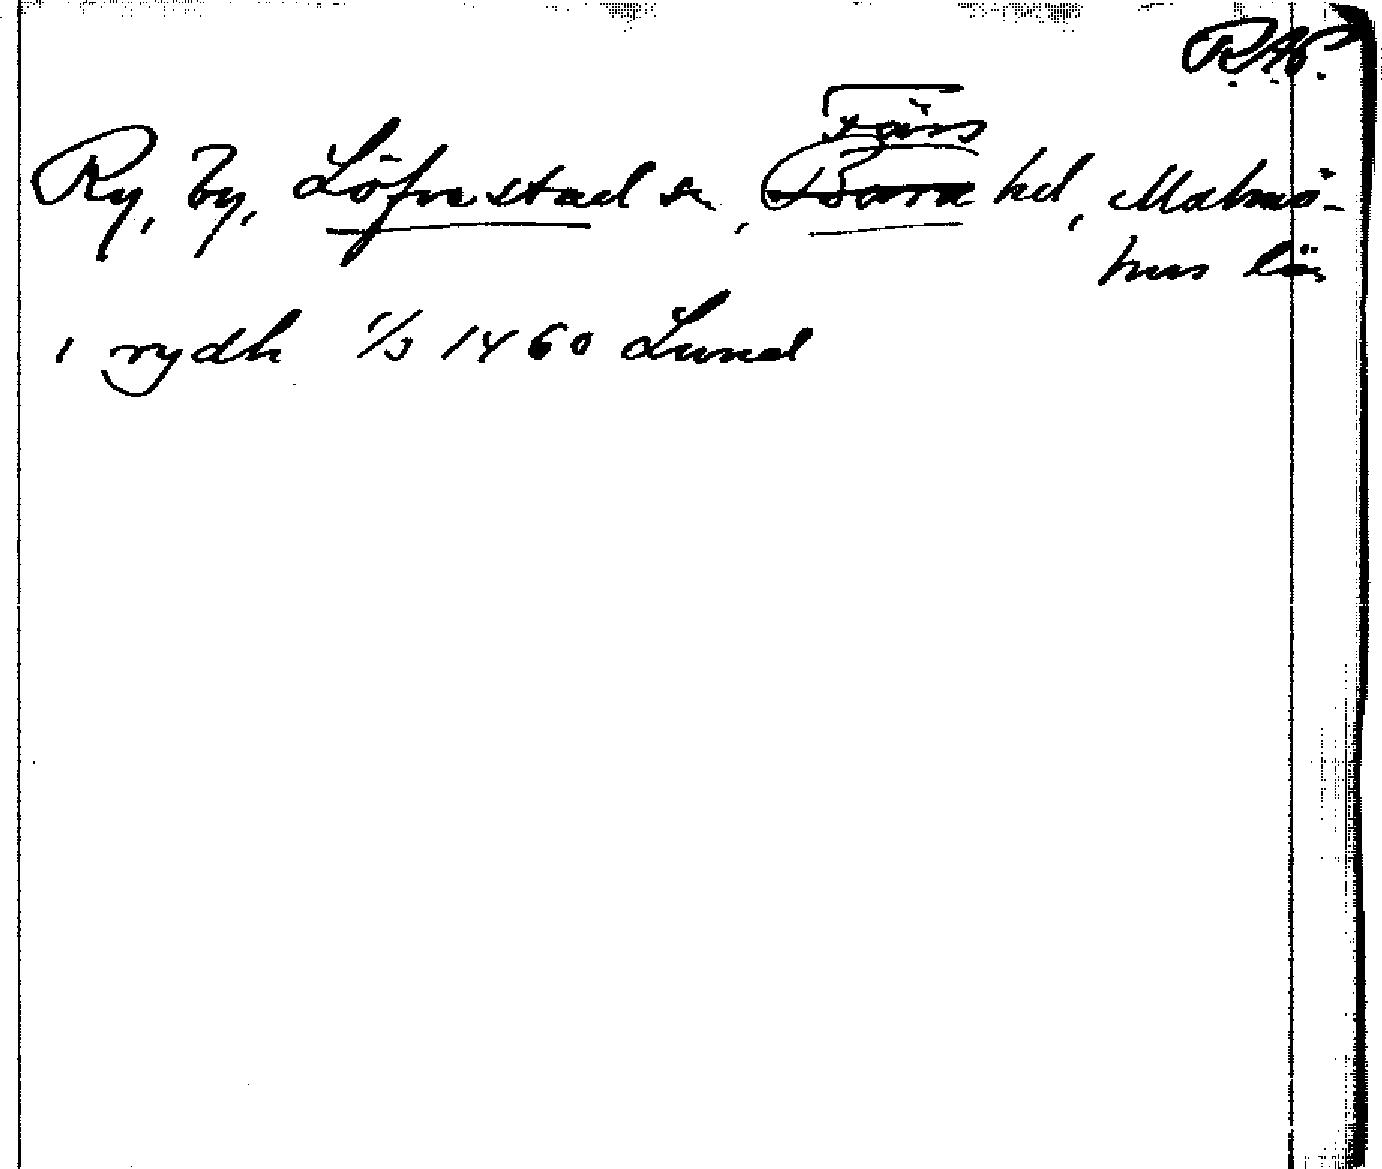 R.A.P.
Färs
Ry, by, Löfvestad sn, Bara hd, Malmö-
hus län
i rydh 1/3 1460 Lund